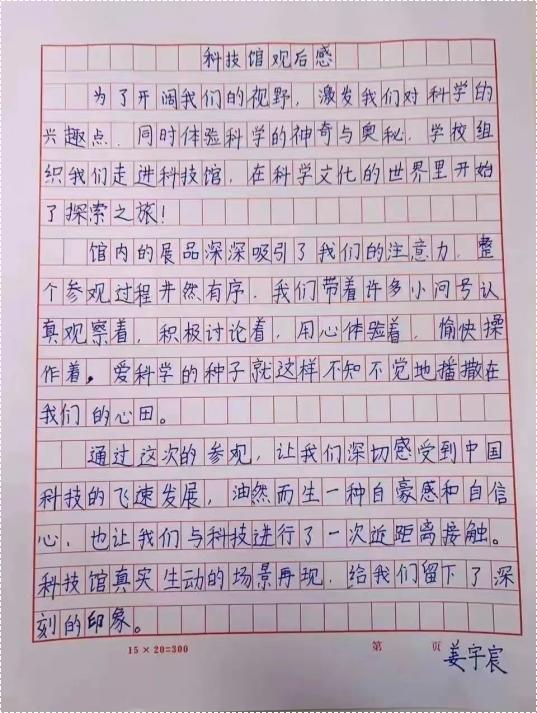 科技馆观后感
为了开阔我们的视野，激发我们对科学的
兴趣点，同时体验科学的神奇与奥秘，学校组
织我们走进科技馆，在科学文化的世界里开始
了探索之旅！
馆内的展品深深吸引了我们的注意力，整
个参观过程井然有序，我们带着许多小问号认
真观察着，积极讨论着，用心体验着，愉快操
作着。爱科学的种子就这样不知不觉地播撒在
我们的心田。
通过这次的参观，让我们深切感受到中国
科技的飞速发展，油然而生一种自豪感和自信
心，也让我们与科技进行了一次近距离接触。
科技馆真实生动的场景再现，给我们留下了深
刻的印象。
15×20=300 第 页
姜宇宸